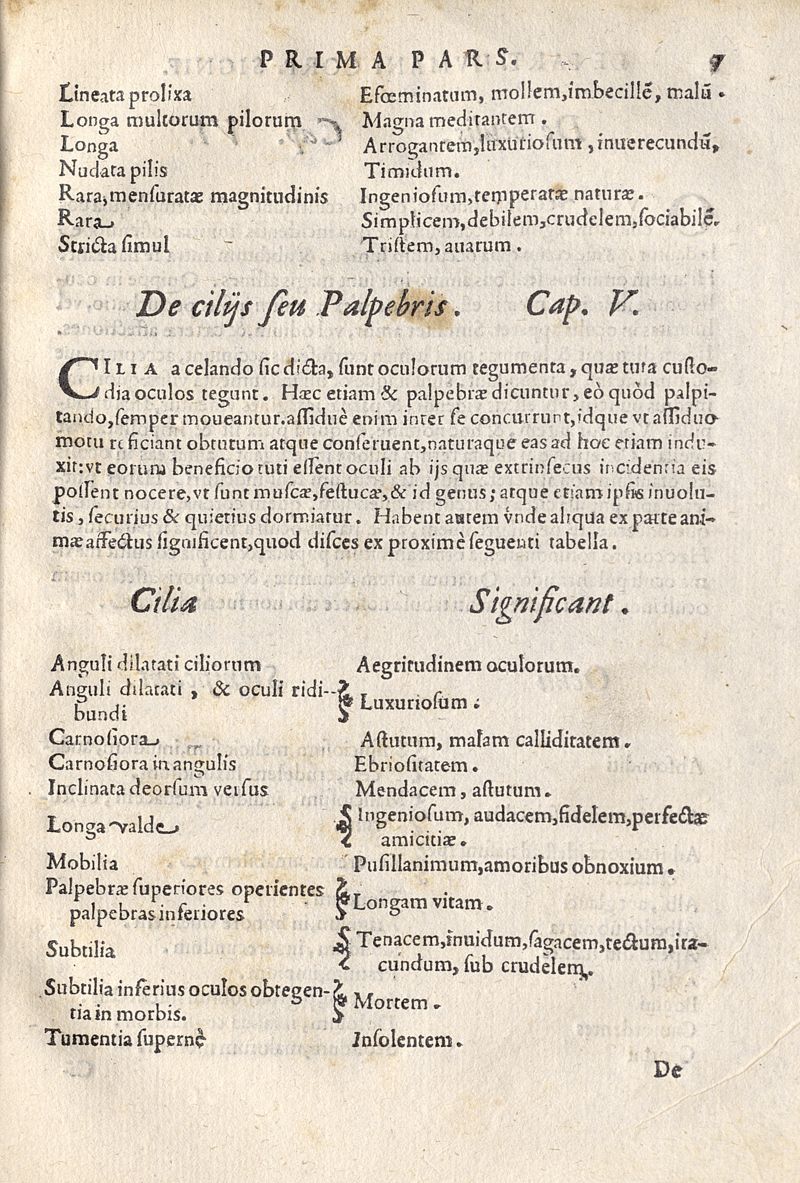 PRIMA PARS. 7
Lineata prolixa Efœminatum, mollem, imbecillẽ, malũ.
Longa multorum pilorum Magna meditantem.
Longa Arrogantem, luxuriosum, inuerecundũ,
Nudata pilis Timidum.
Rara, mensuratæ magnitudinis Ingeniosum, temperatæ naturæ.
Rara Simplicem, debilem, crudelem, sociabilẽ.
Stricta simul Tristem, auarum.
De cilijs seu Palpebris. Cap. V.
CILIA a celando sic dicta, sunt oculorum tegumenta, quæ tuta custo-
dia oculos tegunt. Hæc etiam & palpebræ dicuntur, eò quòd palpi-
tando, semper moueantur. assiduè enim inter se concurrunt, idque vt assiduo
motu reficiant obtutum atque conseruent, naturaque eas ad hoc etiam indu-
xit: vt eorum beneficio tuti essent oculi ab ijs quæ extrinsecus incidentia eis
possent nocere, vt sunt muscæ, festucæ, & id genus; atque etiam ipsis inuolu-
tis, securius & quietius dormiatur. Habent autem vnde aliqua ex parte ani-
mæ affectus significent, quod disces ex proximè seguenti tabella.
Cilia Significant.
Anguli dilatati ciliorum Aegritudinem oculorum.
Anguli dilatati, & oculi ridi-
bundi Luxuriosum.
Carnosiora Astutum, malam calliditatem.
Carnosiora in angulis Ebriositatem.
Inclinata deorsum versus Mendacem, astutum.
Longa valde Ingeniosum, audacem, fidelem, perfectæ
amicitiæ.
Mobilia Pusillanimum, amoribus obnoxium.
Palpebræ superiores operientes
palpebras inferiores Longam vitam.
Subtilia Tenacem, inuidum, sagacem, tectum, ira-
cundum, sub crudelem.
Subtilia inferius oculos obtegen-
tia in morbis. Mortem.
Tumentia supernè Insolentem.
De